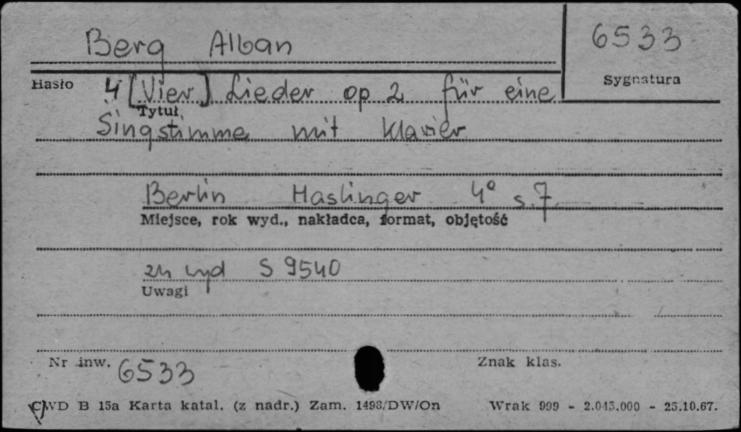 Berg Alban
6533
Hasło
Sygnatura
4 [Vier] Lieder op 2 für eine
Tytuł
Singstimme mit Klavier
Berlin Haslinger 4° s. 7
Miejsce, rok wyd., nakładca, format, objętość
zn wyd S 9540
Uwagi
Nr inw. 6533
Znak klas.
CWD B 15a Karta katal. (z nadr.) Zam. 1498/DW/On
Wrak 999 - 2.045.000 - 25.10.67.